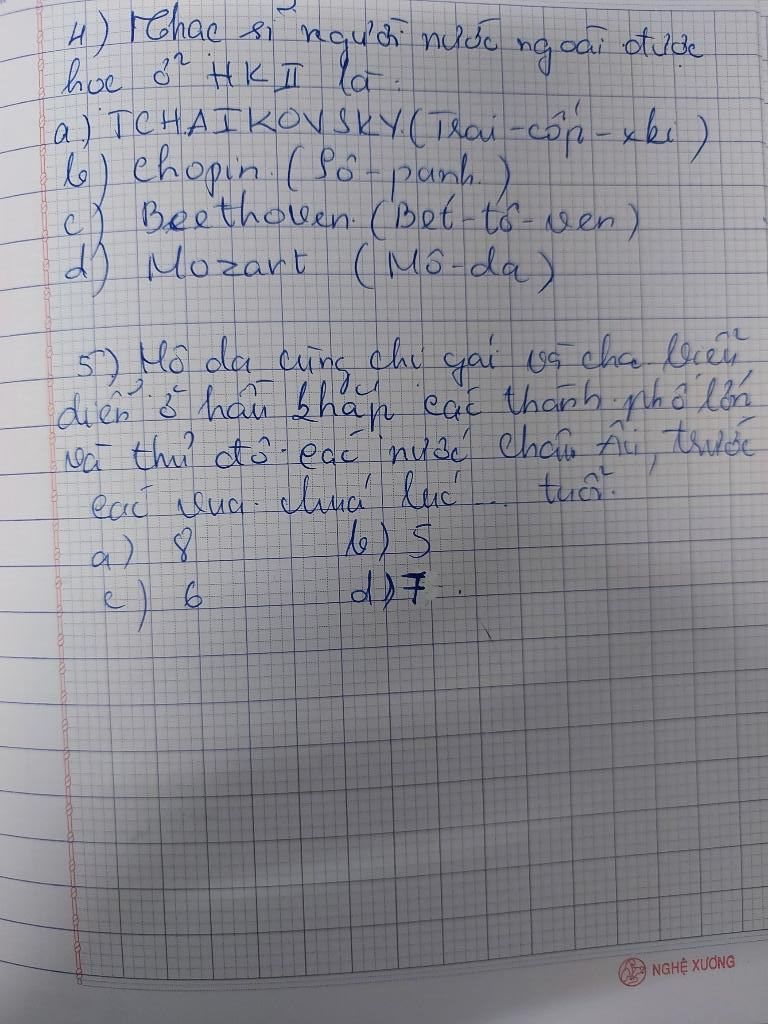 4) Nhạc sĩ người nước ngoài được
học ở HK II là:
a) TCHAIKOVSKY (Trai-cốp-xki)
b) Chopin. (Sô-panh.)
c) Beethoven. (Bét-tô-ven)
d) Mozart (Mô-da)
5) Mô da cùng chị gái và cha biểu
diễn ở hầu khắp các thành phố lớn
và thủ đô các nước châu Âu, trước
các vua chúa lúc ... tuổi.
a) 8 b) 5
c) 6 d) 7
NGHỆ XƯƠNG